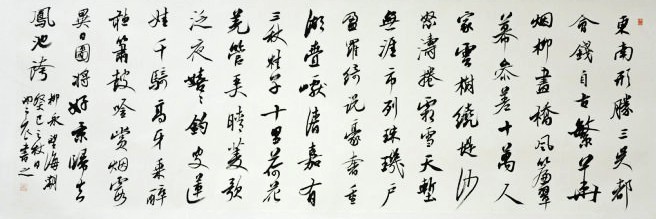 東南形勝三吳都
會錢自古繁華
烟柳畫橋風簾翠
幕參差十萬人
家雲樹繞堤沙
怒濤捲霜雪天塹
無涯市列珠璣戶
盈羅綺競豪奢重
湖疊巘清嘉有
三秋桂子十里荷花
羌管弄晴菱歌
泛夜嬉嬉釣叟蓮
娃千騎高牙乘醉
聽簫鼓吟賞烟霞
異日圖將好景歸去
鳳池誇
柳永望海潮
癸巳之秋日
書之